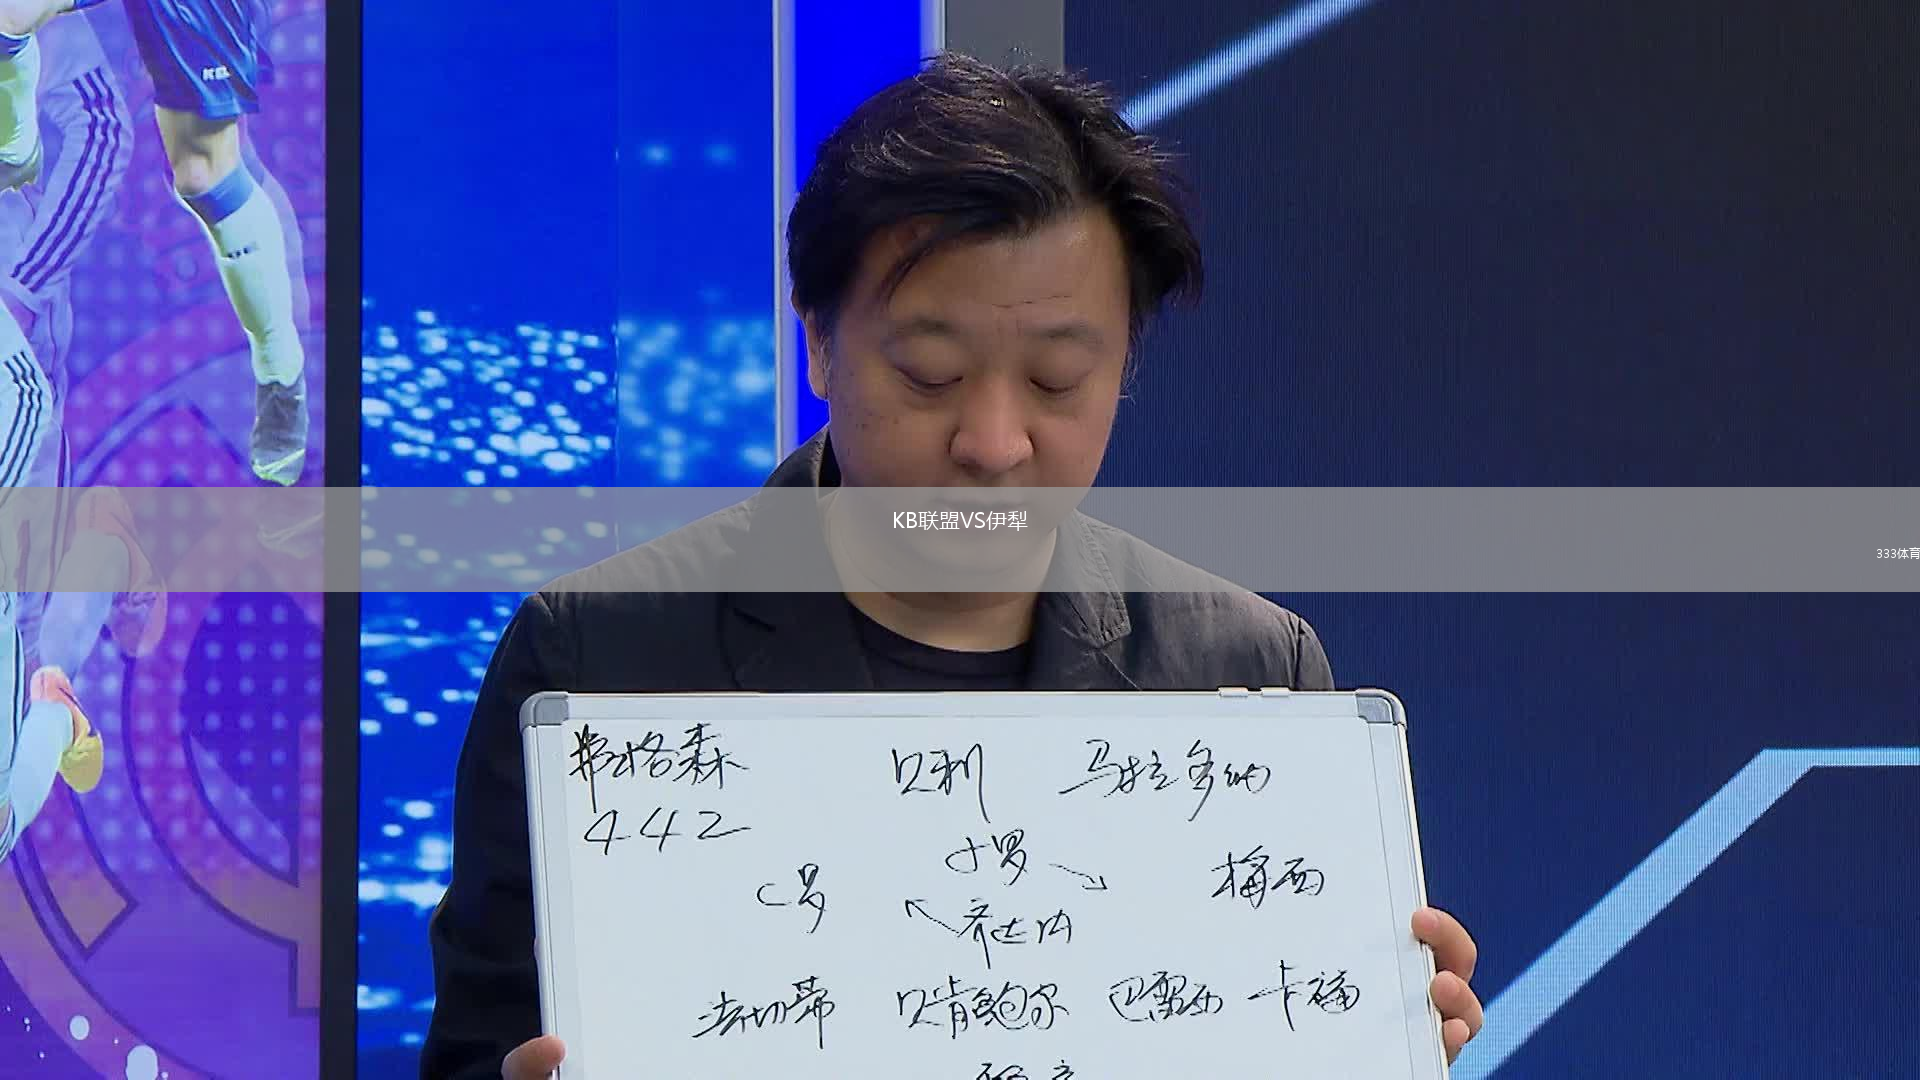 KB联盟VS伊犁
333体育
弗格森 贝利 马拉多纳
442
小罗
C罗 梅西
齐达内
法切蒂 贝肯鲍尔 巴雷西 卡福